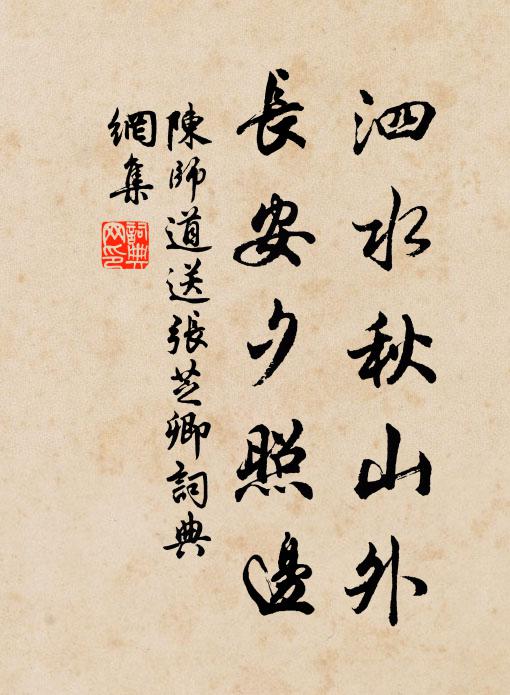 泗水秋山外
長安夕照邊
陳師道送張芝卿詞典
網集
詞典
网印